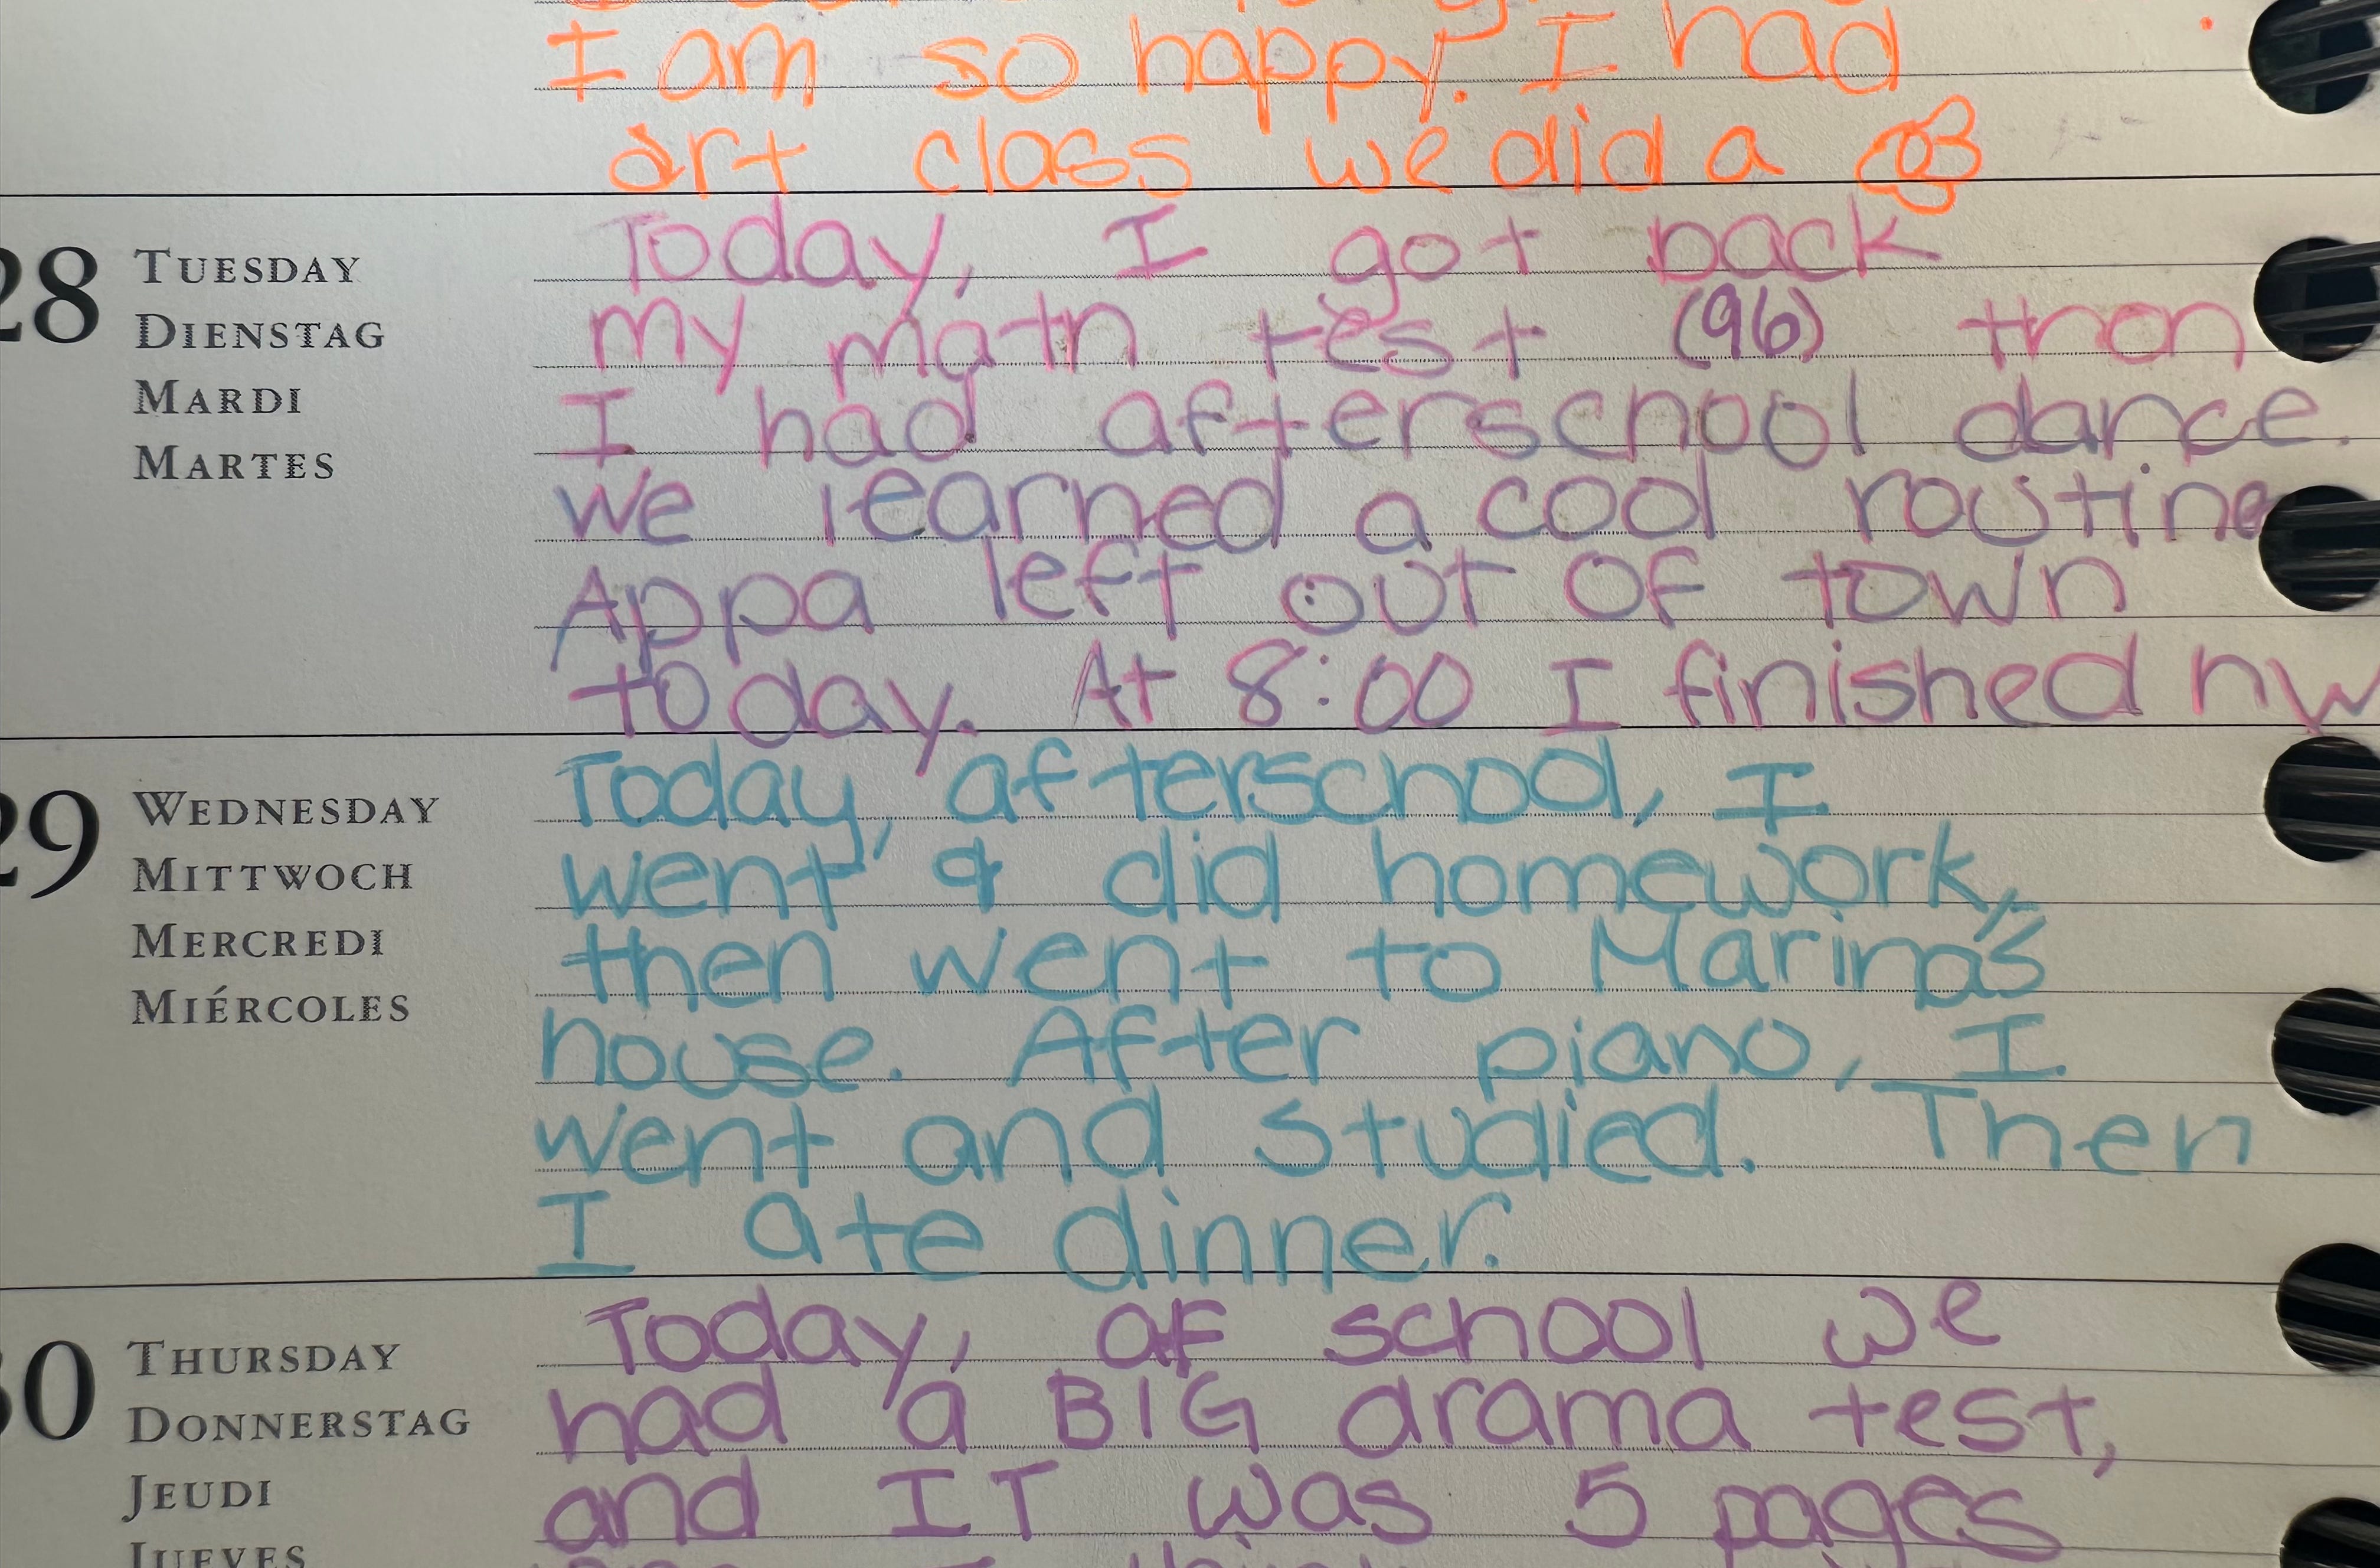 I am so happy. I had
art class we did a
28 TUESDAY
DIENSTAG
MARDI
MARTES
Today, I got back
my math test (96) then
I had afterschool dance.
we learned a cool routine
Appa left out of town
today. At 8:00 I finished hw
29 WEDNESDAY
MITTWOCH
MERCREDI
MIÉRCOLES
Today, afterschool, I
went & did homework,
then went to Marina's
house. After piano, I
went and studied. Then
I ate dinner.
30 THURSDAY
DONNERSTAG
JEUDI
JUEVES
Today, at school we
had a BIG drama test,
and IT was 5 pages